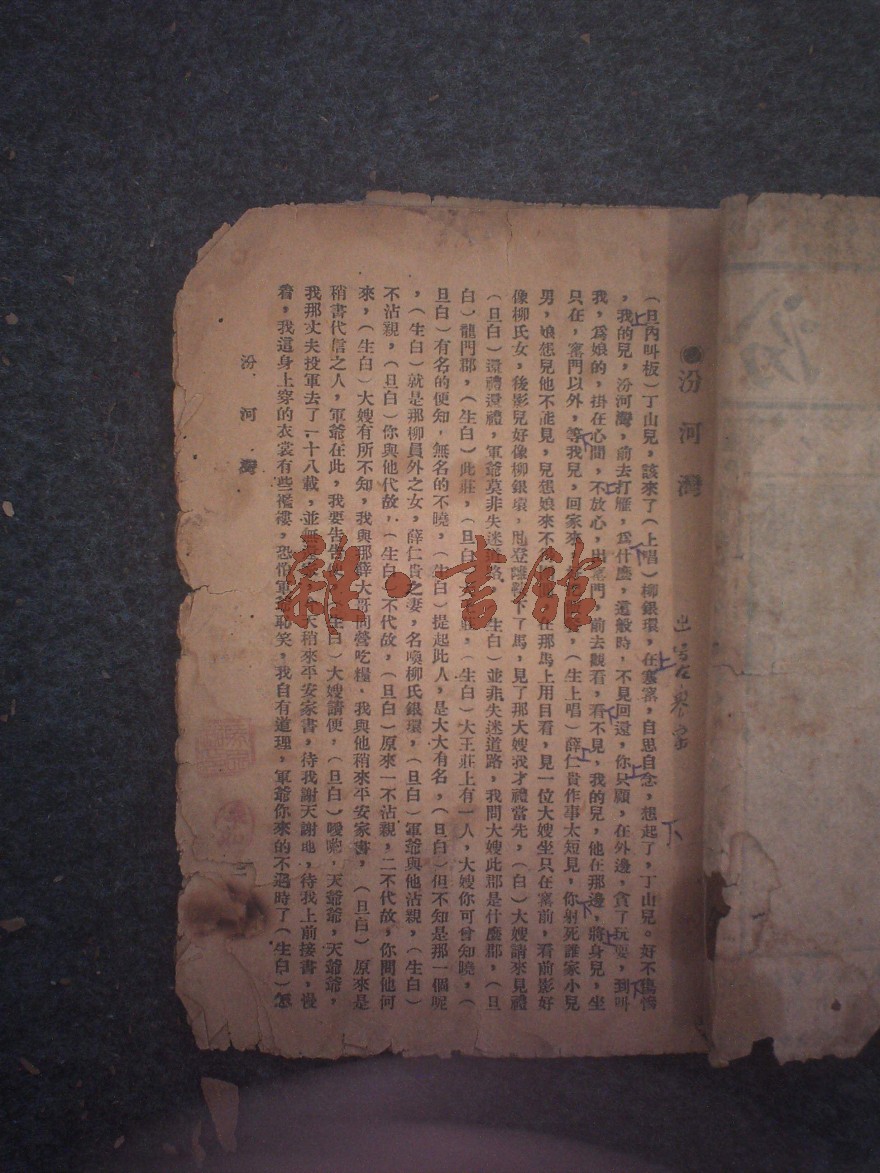 汾河灣
(旦內叫板)丁山兒,該來了(上唱)柳銀環,在寒窰,自思自念,想起了,丁山兒。好不傷慘
,我的兒,汾河灣,前去打雁,爲什麼,這般時,不見回還,你只顧,在外邊,貪了玩耍,到叫
我,爲娘的,掛在心間,不放心,出窰門,前去觀看,看不見,我的兒,他在那邊,將身兒,坐
只在,窰門以外,等我兒,回家來,(生上唱)薛仁貴作事太短見,你射死誰家小兒
男,娘怨兒他不能見,兒想娘來不在那馬上用目看,見一位大嫂坐只在窰前,看前影好
像柳氏女,後影兒好像柳銀環,甩登離鞍下了馬,見了那大嫂我才禮當先,(白)大嫂請來見禮
(旦白)還禮還禮,軍爺莫非失迷道路,(生白)並非失迷道路,我問大嫂此郡是什麼郡,(旦
白)龍門郡,(生白)此莊,(旦白)大王莊,(生白)大王莊上有一人,大嫂你可曾知曉,(
旦白)有名的便知,無名的不曉,(生白)提起此人,是大大有名,(旦白)但不知是那一個呢
,(生白)就是那柳員外之女,薛仁貴之妻,名喚柳氏銀環,(旦白)軍爺與他沾親,(生白)
不沾親,(旦白)你與他代故,(生白)不代故,(旦白)原來一不沾親,二不代故,你問他何
來,(生白)大嫂有所不知,我與那薛大哥同營吃糧,我與他稍來平安家書,(旦白)原來是
稍書代信之人,軍爺在此,我要告告(生白)大嫂請便,(旦白)噯喲,天爺爺,天爺爺,
我那丈夫投軍去了一十八載,並無稍來平安家書,待我謝天謝地,待我上前接書,漫
着,我這身上穿的衣裳有些襤褸,恐怕軍爺恥笑,我自有道理,軍爺你來的不過時了(生白)怎
汾河灣
上
下
上
下
上
下
上
下
上
下
雜·書館